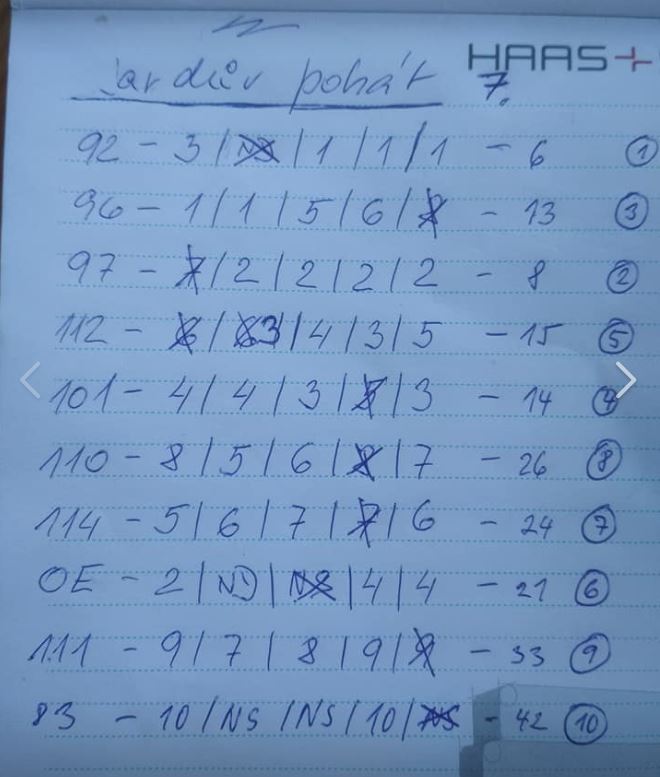 HAAS+
pohár 7.
92 - 3 / NS / 1 / 1 / 1 - 6 ①
96 - 1 / 1 / 5 / 6 / 8 - 13 ③
97 - 7 / 2 / 2 / 2 / 2 - 8 ②
112 - 6 / 3 / 4 / 3 / 5 - 15 ⑤
101 - 4 / 4 / 3 / 5 / 3 - 14 ④
110 - 8 / 5 / 6 / 8 / 7 - 26 ⑧
114 - 5 / 6 / 7 / 7 / 6 - 24 ⑦
OE - 2 / ND / NS / 4 / 4 - 21 ⑥
111 - 9 / 7 / 8 / 9 / 9 - 33 ⑨
83 - 10 / NS / NS / 10 / NS - 42 ⑩